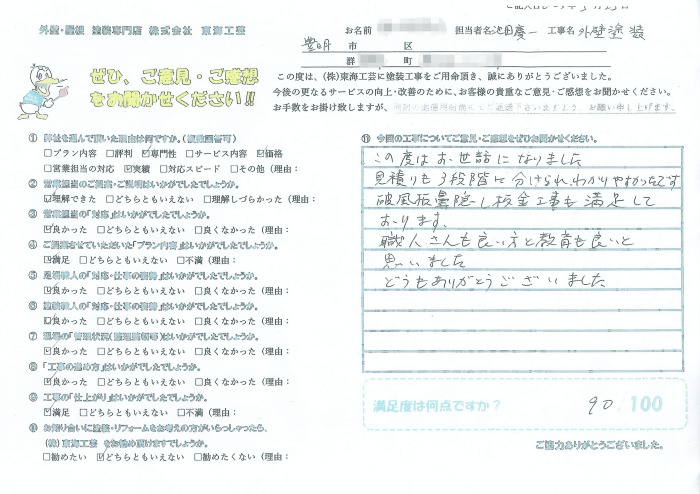 外壁・屋根 塗装専門店 株式会社 東海工芸
ぜひ、ご意見・ご感想
をお聞かせください!!
お名前 担当者名 池田慶一 工事名 外壁塗装
豊明 市 区
群 町
この度は、(株)東海工芸に塗装工事をご用命頂き、誠にありがとうございました。
今後の更なるサービスの向上・改善のために、お客様の貴重なご意見・ご感想をお聞かせください。
お手数をお掛け致しますが、同封の返信用封筒にてご返送下さいますよう、お願い申し上げます。
① 弊社を選んで頂いた理由は何ですか。(複数回答可)
□プラン内容 □評判 ☑専門性 □サービス内容 ☑価格
□営業担当の対応 ☑実績 □対応スピード □その他(理由:
② 営業担当のご提案・ご説明はいかがでしたでしょうか。
☑理解できた □どちらともいえない □理解しづらかった(理由:
③ 営業担当の「対応」はいかがでしたでしょうか。
☑良かった □どちらともいえない □良くなかった(理由:
④ ご提案させていただいた「プラン内容」はいかがでしたでしょうか。
☑満足 □どちらともいえない □不満(理由:
⑤ 足場職人の「対応・仕事の姿勢」はいかがでしたでしょうか。
☑良かった □どちらともいえない □良くなかった(理由:
⑥ 塗装職人の「対応・仕事の姿勢」はいかがでしたでしょうか。
☑良かった □どちらともいえない □良くなかった(理由:
⑦ 現場の「管理状況(整理整頓等)はいかがでしたでしょうか。
☑良かった □どちらともいえない □良くなかった(理由:
⑧ 「工事の進め方」はいかがでしたでしょうか。
☑良かった □どちらともいえない □良くなかった(理由:
⑨ 工事の「仕上がり」はいかがでしたでしょうか。
☑満足 □どちらともいえない □不満(理由:
⑩ お知り合いに塗装・リフォームをお考えの方がいらっしゃったら、
(株)東海工芸 をお勧め頂けますでしょうか。
□勧めたい ☑どちらともいえない □勧めたくない(理由:
⑪ 今回の工事についてご意見・ご感想をぜひお聞かせください。
この度はお世話になりました
見積りも3段階に分けられ、わかりやすかったです
破風板鼻隠し板金工事も満足して
おります。
職人さんも良い方と教育も良いと
思いました
どうもありがとうございました
満足度は何点ですか? 90/100
ご協力ありがとうございました。